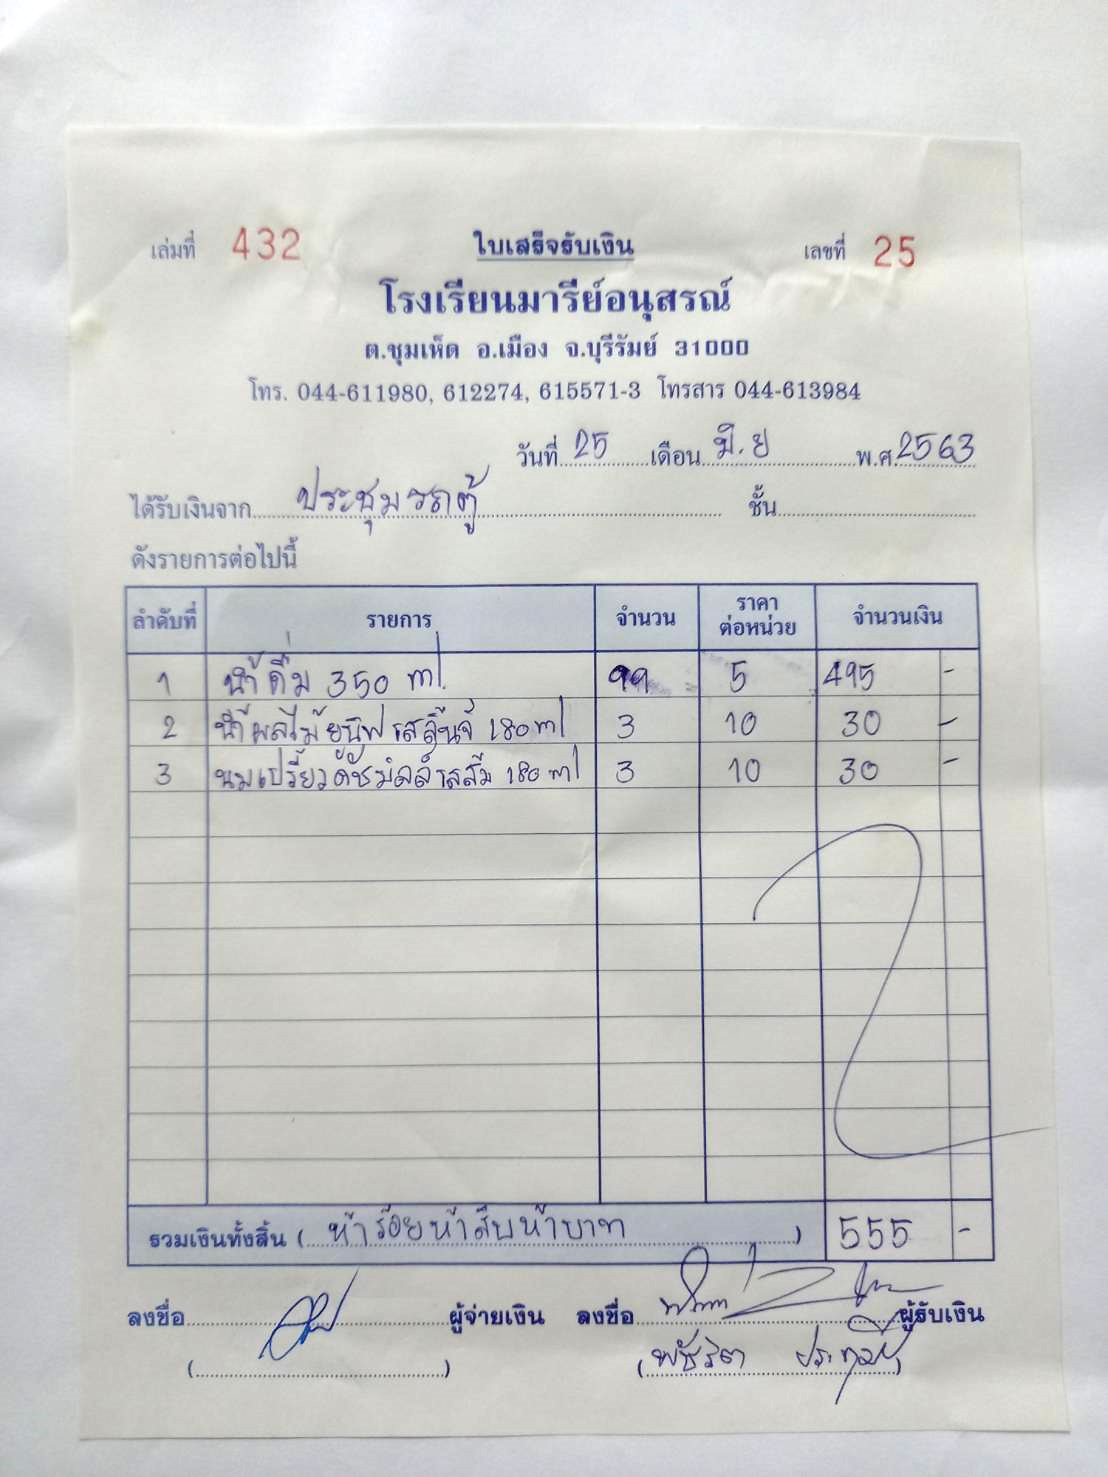 เล่มที่ 432 ใบเสร็จรับเงิน เลขที่ 25
โรงเรียนมารีย์อนุสรณ์
ต.ชุมเห็ด อ.เมือง จ.บุรีรัมย์ 31000
โทร. 044-611980, 612274, 615571-3 โทรสาร 044-613984
วันที่ 25 เดือน มิ.ย พ.ศ. 2563
ได้รับเงินจาก ประชุมรถตู้ ชั้น
ดังรายการต่อไปนี้
ลำดับที่ รายการ จำนวน ราคาต่อหน่วย จำนวนเงิน
1 น้ำดื่ม 350 ml. 99 5 495 -
2 น้ำผลไม้ยูนิฟรสลิ้นจี่ 180 ml 3 10 30 -
3 นมเปรี้ยวดัชมิลล์รสส้ม 180 ml 3 10 30 -
รวมเงินทั้งสิ้น ( ห้าร้อยห้าสิบห้าบาท ) 555 -
ลงชื่อ ผู้จ่ายเงิน ลงชื่อ ผู้รับเงิน
( ) ( พัชริดา )